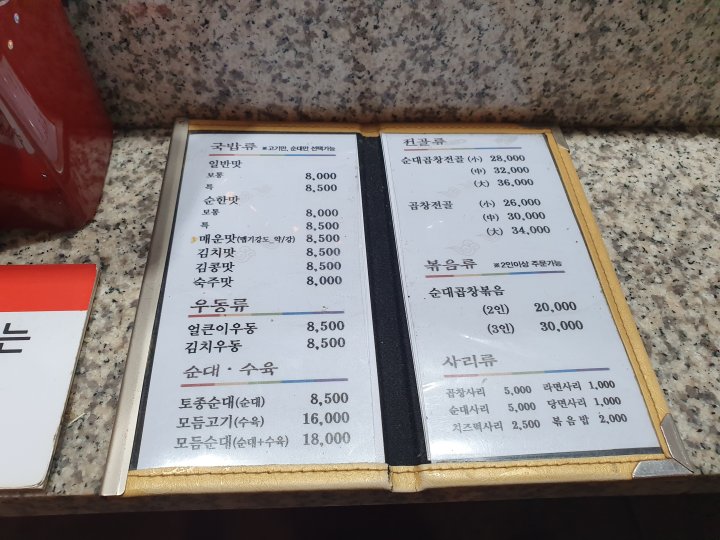 국밥류 ※고기만, 순대만 선택가능
일반맛
보통 8,000
특 8,500
순한맛
보통 8,000
특 8,500
매운맛(맵기강도_약/강) 8,500
김치맛 8,500
김콩맛 8,500
숙주맛 8,000
우동류
얼큰이우동 8,500
김치우동 8,500
순대·수육
토종순대(순대) 8,500
모듬고기(수육) 16,000
모듬순대(순대+수육) 18,000
전골류
순대곱창전골 (小) 28,000
(中) 32,000
(大) 36,000
곱창전골 (小) 26,000
(中) 30,000
(大) 34,000
볶음류 ※2인이상 주문가능
순대곱창볶음
(2인) 20,000
(3인) 30,000
사리류
곱창사리 5,000 라면사리 1,000
순대사리 5,000 당면사리 1,000
치즈떡사리 2,500 볶음밥 2,000
는